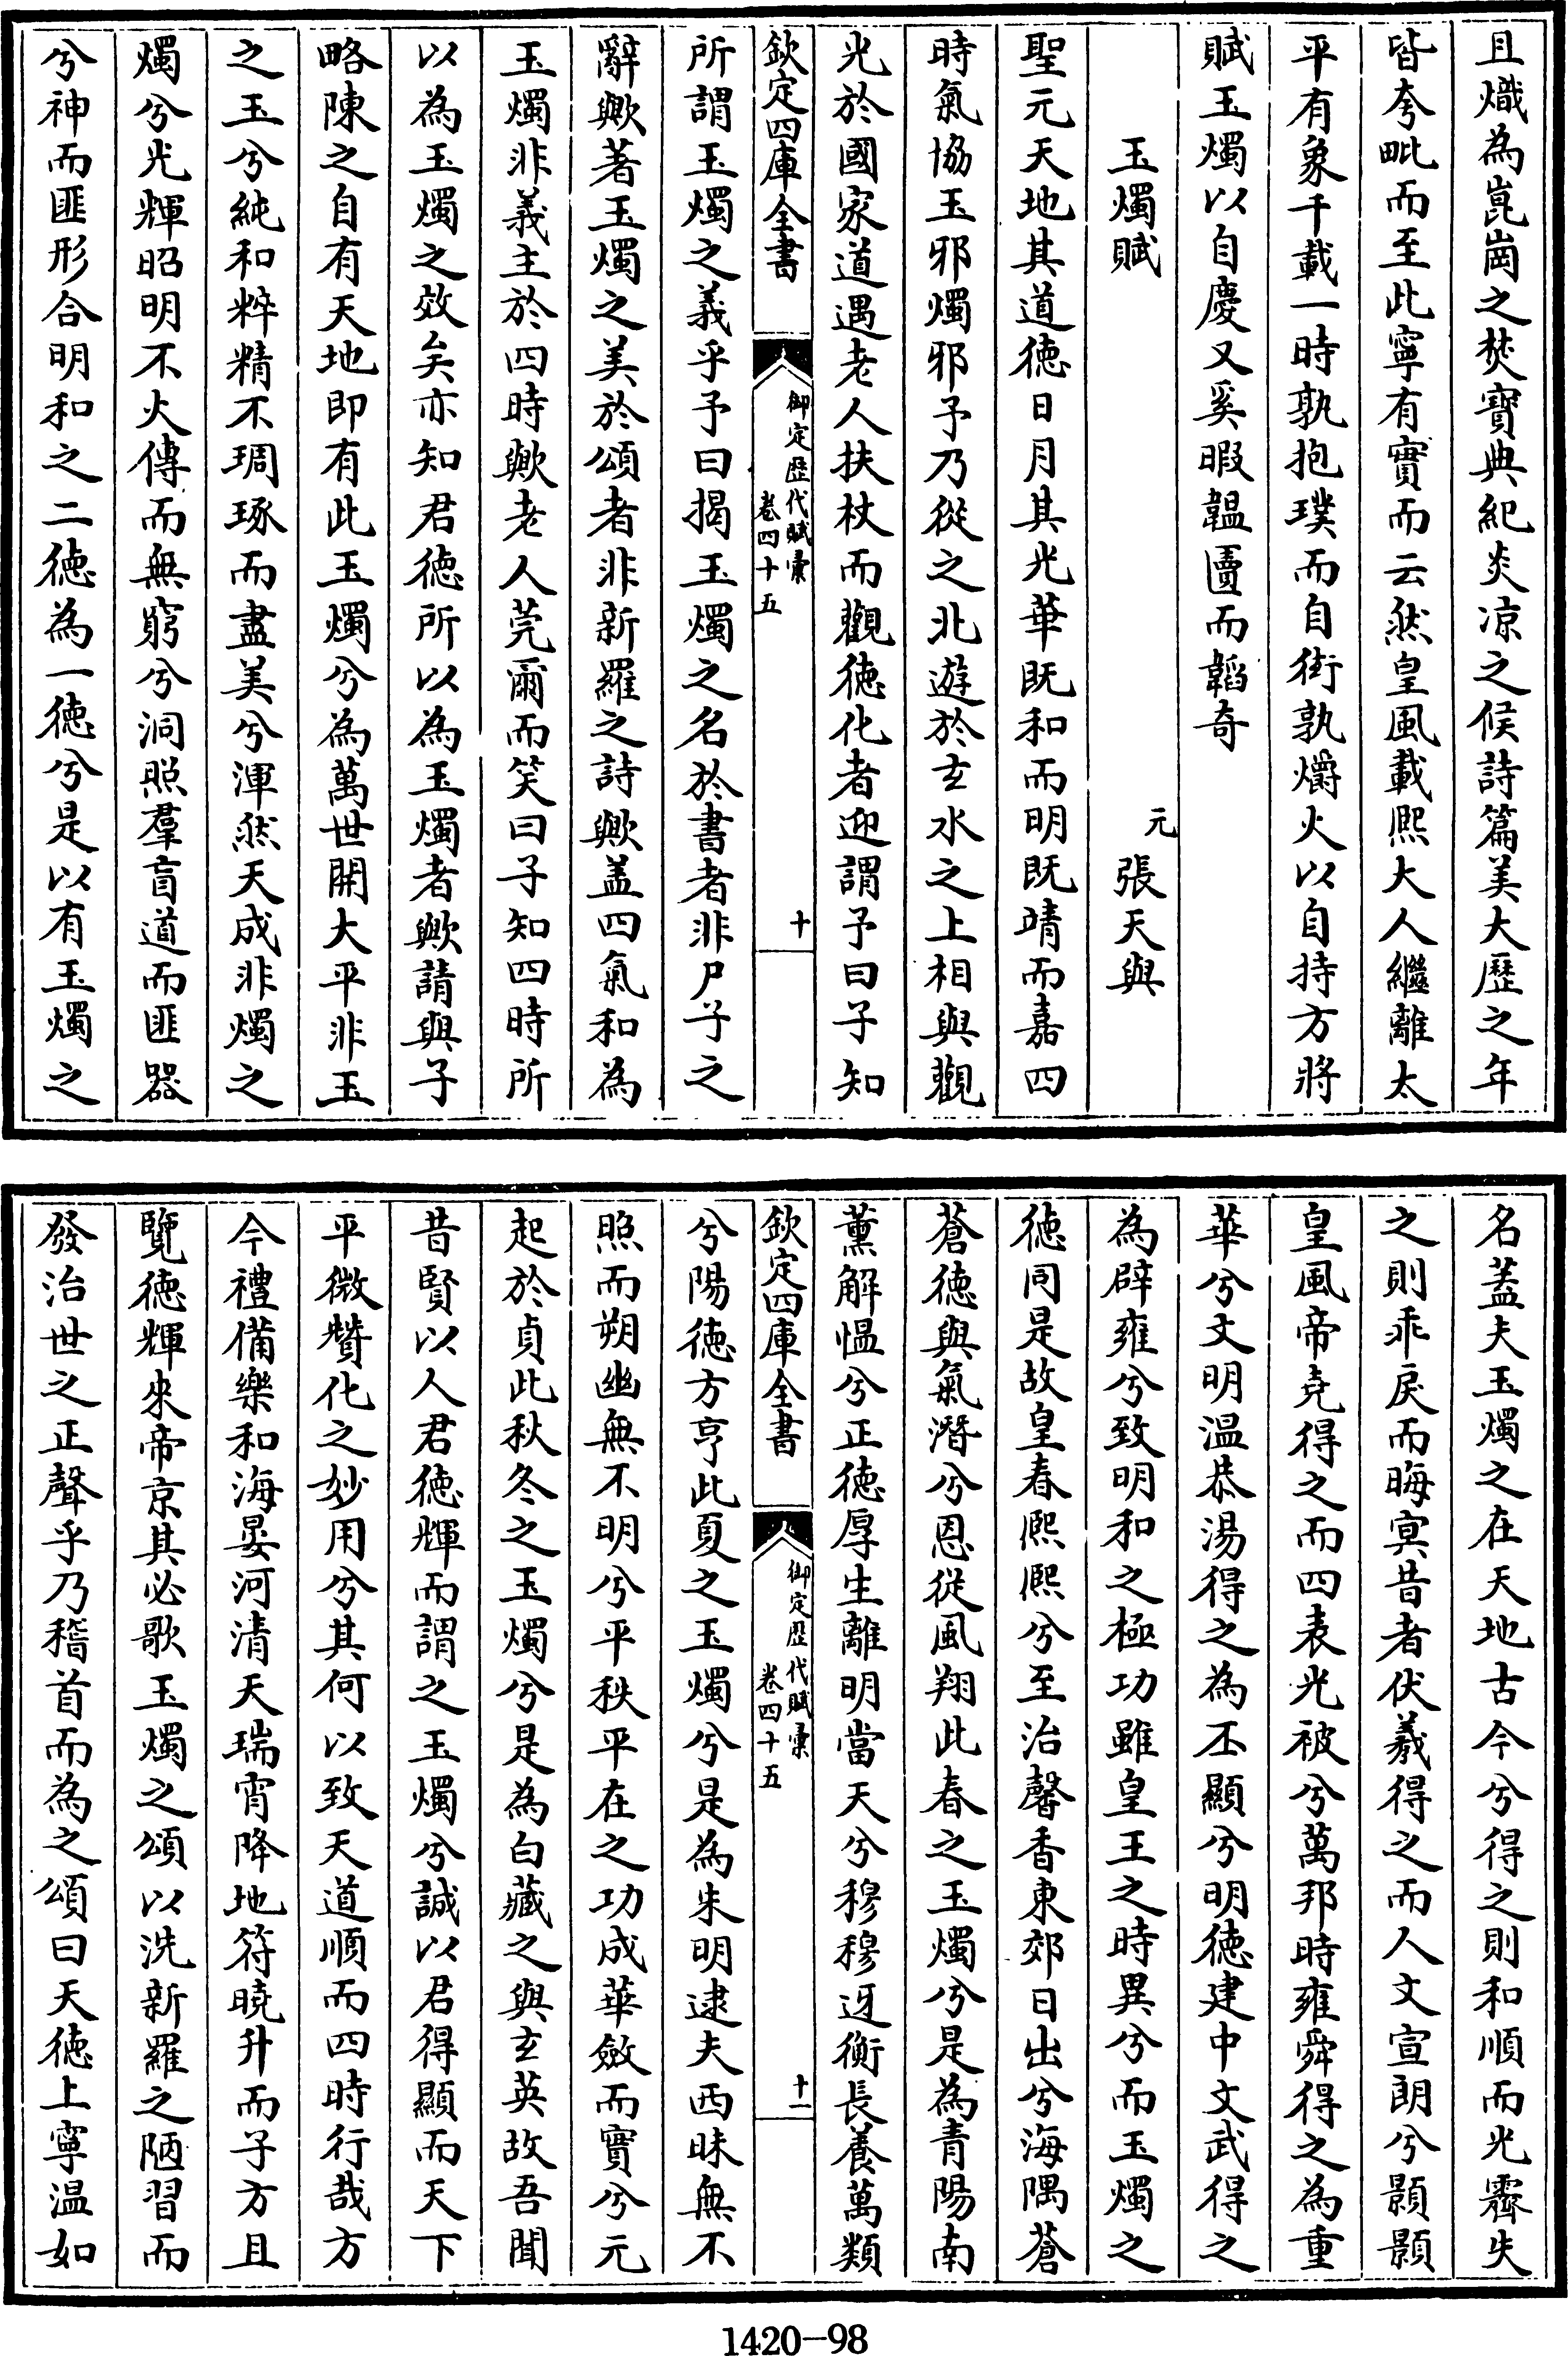 且熾為崑崗之焚寶典紀炎凉之候詩篇美大歷之年
皆夸毗而至此寧有實而云然皇風載熈大人繼離太
平有象千載一時孰抱璞而自衒孰爝火以自持方將
賦玉燭以自慶又奚暇韞匵而韜奇
玉燭賦 元 張天與
聖元天地其道徳日月其光華既和而明既靖而嘉四
時氣協玉邪燭邪予乃從之北遊於玄水之上相與觀
光於國家道遇老人扶杖而觀徳化者迎謂予曰子知
欽定四庫全書 御定歴代賦彚 卷四十五 十
所謂玉燭之義乎予曰揭玉燭之名於書者非尸子之
辭歟著玉燭之美於頌者非新羅之詩歟盖四氣和為
玉燭非義主於四時歟老人莞爾而笑曰子知四時所
以為玉燭之效矣亦知君徳所以為玉燭者歟請與子
略陳之自有天地即有此玉燭兮為萬世開大平非玉
之玉兮純和粹精不琱琢而盡美兮渾然天成非燭之
燭兮光輝昭明不火傳而無窮兮洞照羣盲道而匪器
兮神而匪形合明和之二徳為一徳兮是以有玉燭之
名盖夫玉燭之在天地古今兮得之則和順而光霽失
之則乖戾而晦㝠昔者伏羲得之而人文宣朗兮顥顥
皇風帝堯得之而四表光被兮萬邦時雍舜得之為重
華兮文明温恭湯得之為丕顯兮明徳建中文武得之
為辟雍兮致明和之極功雖皇王之時異兮而玉燭之
徳同是故皇春熈熈兮至治馨香東郊日出兮海隅蒼
蒼徳與氣潛兮恩從風翔此春之玉燭兮是為青陽南
薫解愠兮正徳厚生離明當天兮穆穆迓衡長養萬類
欽定四庫全書 御定歴代賦彚 卷四十五 十一
兮陽徳方亨此夏之玉燭兮是為朱明逮夫西昧無不
照而朔幽無不明兮平秩平在之功成華斂而實兮元
起於貞此秋冬之玉燭兮是為白藏之與玄英故吾聞
昔賢以人君徳輝而謂之玉燭兮誠以君得顯而天下
平微贊化之妙用兮其何以致天道順而四時行哉方
今禮備樂和海晏河清天瑞宵降地符曉升而子方且
覽徳輝來帝京其必歌玉燭之頌以洗新羅之陋習而
發治世之正聲乎乃稽首而為之頌曰天徳上寧温如
1420-98